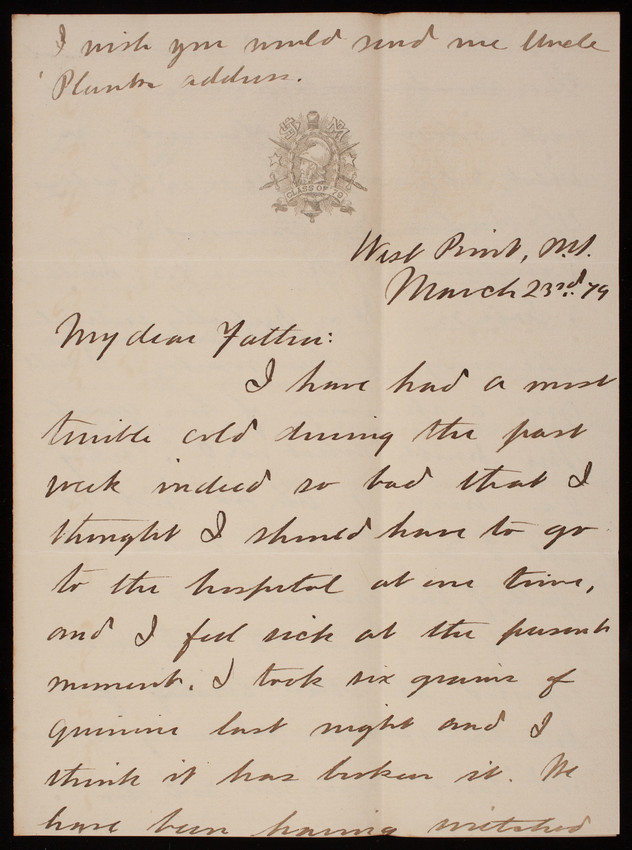 I wish you would send me Uncle
address.
CLASS OF 79
West Point, N.Y.
March 23rd. 79
My dear Father:
I have had a most
terrible cold during the past
week indeed so bad that I
thought I should have to go
to the hospital at one time,
and I feel sick at the present
moment. I took six grains of
quinine last night and I
think it has broken it. We
have been having wretched